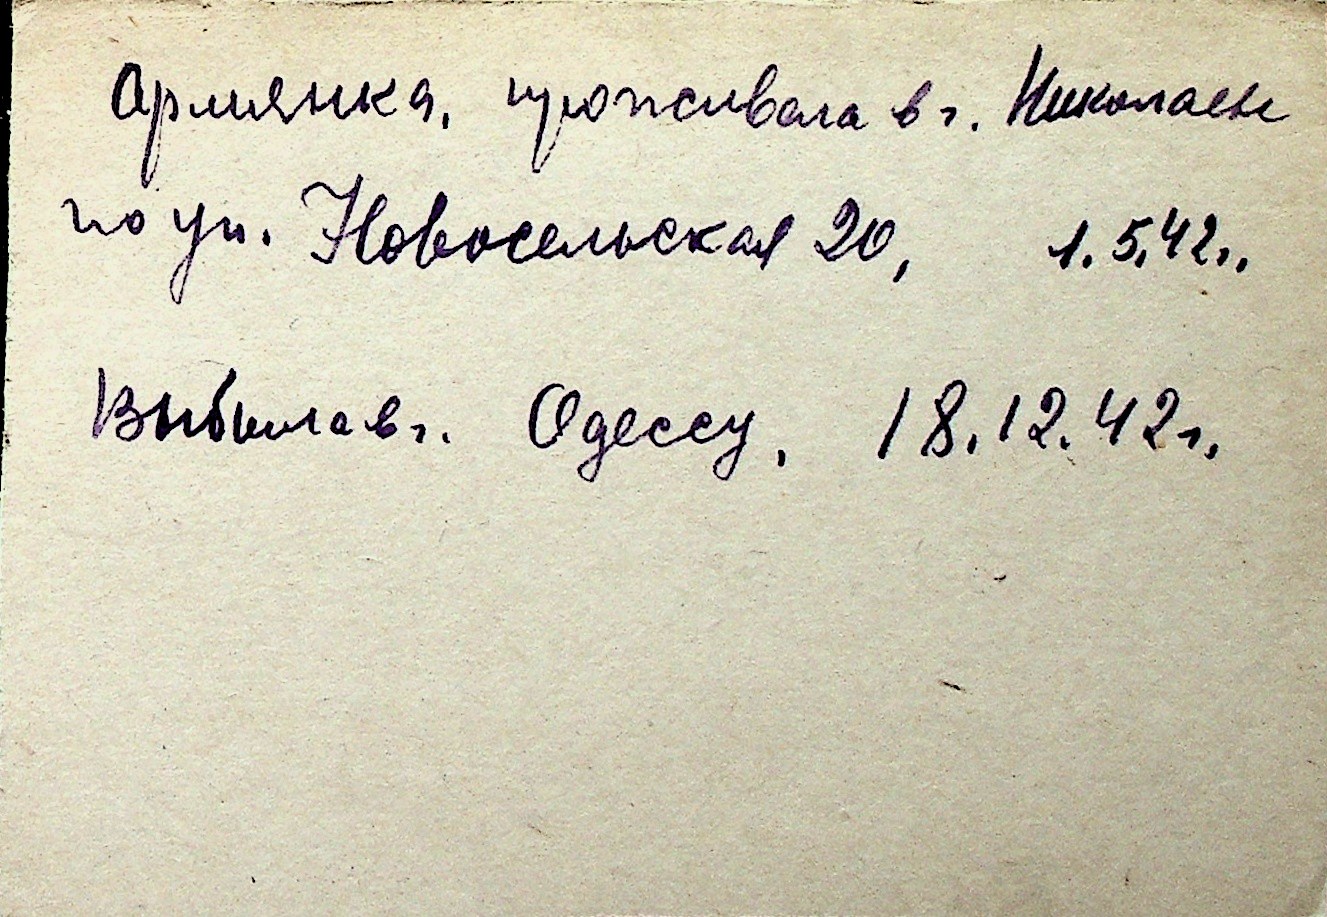 Армянка, проживала в г. Николаеве
по ул. Новосельская 20, 1.5.42г.
Выбыла в г. Одессу, 18.12.42г.